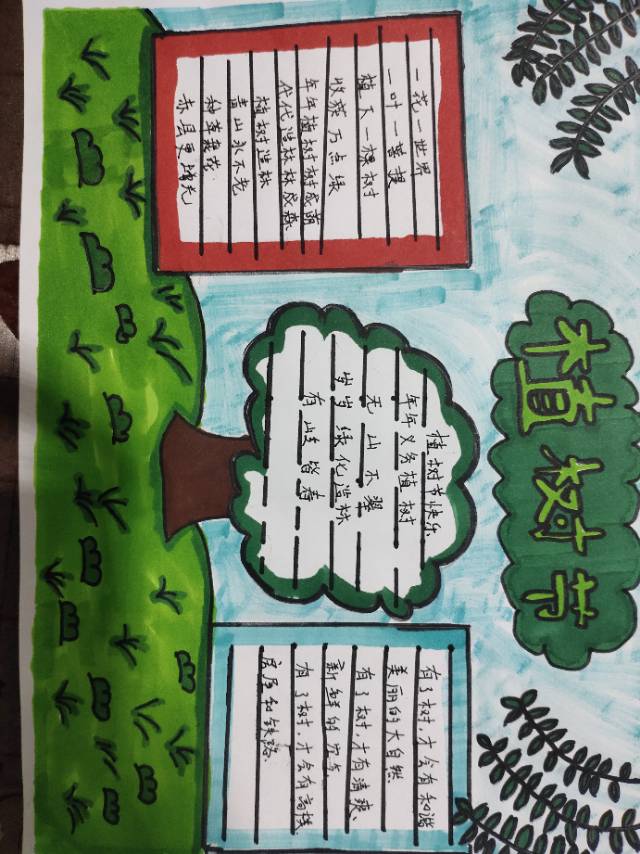 植树节
一花一世界
一叶一菩提
植下一棵树
收获万点绿
年年植树树成荫
代代造林林成森
植树造林
青山永不老
赤县更增光
植树节快乐
年年义务植树
无山不翠
岁岁绿化造林
有岭皆春
有了树，才会有和谐
美丽的大自然
有了树，才有清爽、
新鲜的空气
有了树，才会有高楼
房屋和铁路